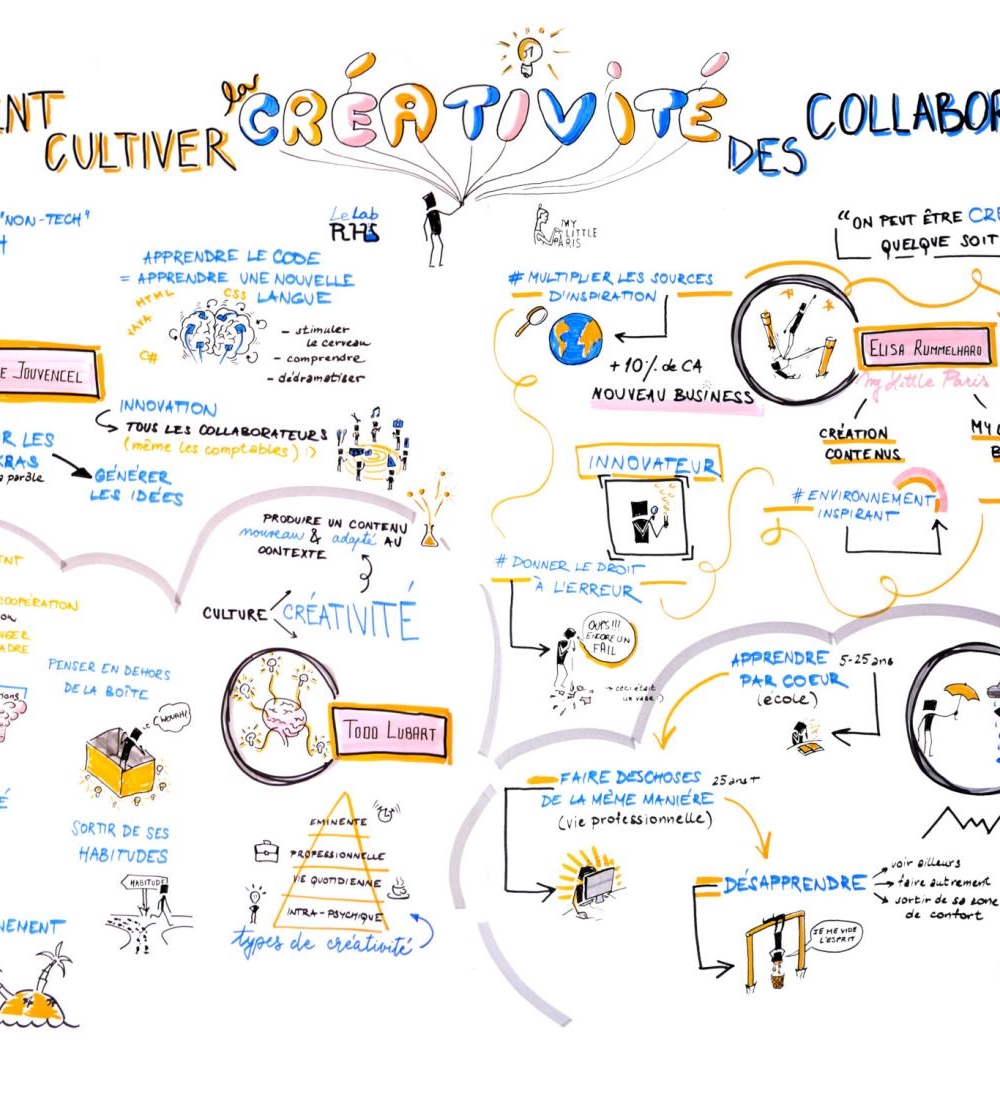 ENT
CULTIVER
la
CRÉATIVITÉ
DES
COLLABOR
"NON-TECH"
Le Lab
RHS
APPRENDRE LE CODE
= APPRENDRE UNE NOUVELLE
LANGUE
HTML
CSS
JAVA
C#
- stimuler
le cerveau
- comprendre
- dédramatiser
E JOUVENCEL
INNOVATION
TOUS LES COLLABORATEURS
(même les comptables) :>
R LES
KRAS
GÉNÉRER
LES IDÉES
PRODUIRE UN CONTENU
nouveau & adapté AU
CONTEXTE
ENT
COOPÉRATION
ON
NGER
ADRE
CULTURE
CRÉATIVITÉ
PENSER EN DEHORS
DE LA BOÎTE
WOUAH!
TODD LUBART
É
SORTIR DE SES
HABITUDES
HABITUDE
EMINENTE
PROFESSIONNELLE
VIE QUOTIDIENNE
INTRA-PSYCHIQUE
types de créativité
NEMENT
MY
LITTLE
PARIS
# MULTIPLIER LES SOURCES
D'INSPIRATION
+10% de CA
NOUVEAU BUSINESS
"ON PEUT ÊTRE CRÉ
QUELQUE SOIT
ELISA RUMMELHARD
My Little Paris
CRÉATION
CONTENUS
MY L
B
INNOVATEUR
# ENVIRONNEMENT
INSPIRANT
# DONNER LE DROIT
À L'ERREUR
OUPS!!!
ENCORE UN
FAIL
→ ceci était
un vase :)
APPRENDRE 5-25 ans
PAR COEUR
(école)
FAIRE DES CHOSES 25 ans+
DE LA MÊME MANIÉRE
(vie professionnelle)
DÉSAPPRENDRE
voir ailleurs
faire autrement
sortir de sa zone
de confort
JE ME VIDE
L'ESPRIT